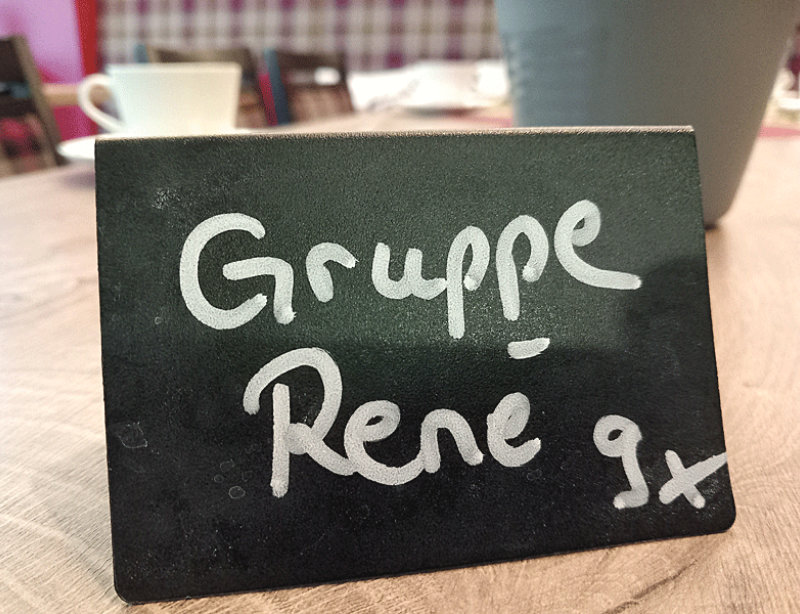 Gruppe
René
9x